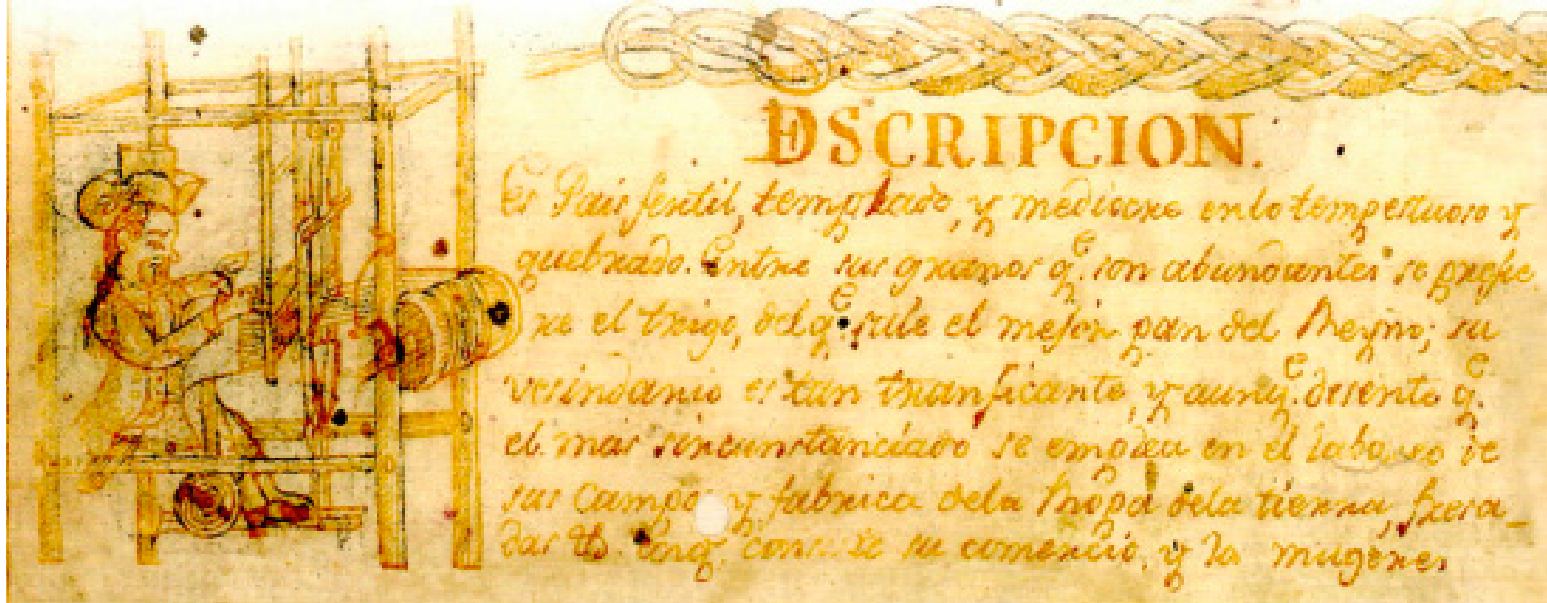 DESCRIPCION.
Es Pais fertil, templado, y mediocre enlo tempestuoso y
quebrado. Entre sus granos q.e son abundantes se prefie
re el trigo, del q.e sale el mejor pan del Reyno; su
vesindario es tan tranficante, y aunq.e desente q.e
el mas sircunstanciado se emplea en el laboreo de
sus Campos y fabrica dela Ropa dela tierra, fresa_
das &. Enq. consiste su comercio, y la mugeres